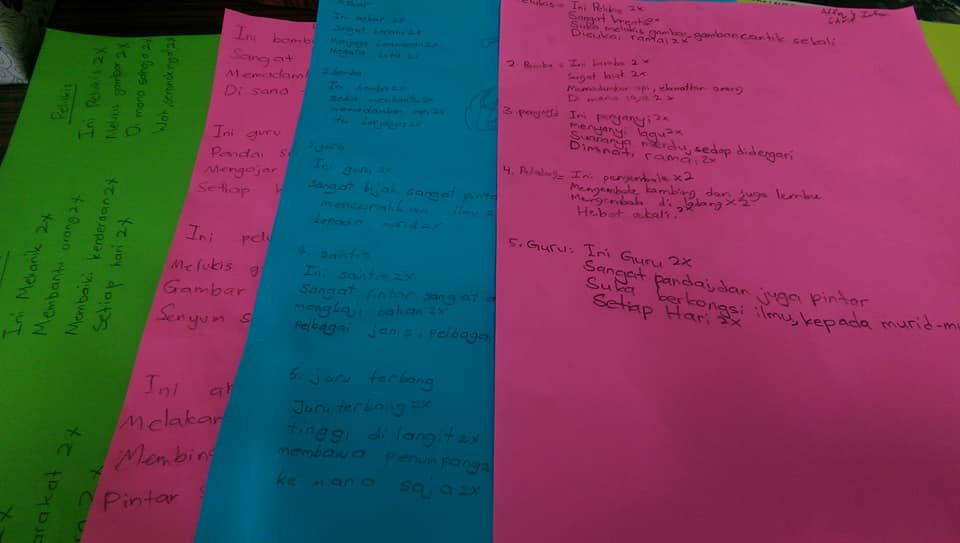 Pelukis
Ini Pelukis 2x
Melukis gambar 2x
Di mana sahaja 2x
Ini Mekanik 2x
Membantu orang 2x
Membaiki kenderaan 2x
Setiap hari 2x
arakat 2x
Ini bomb
Sangat
Memadam
Di sana
Ini guru
Pandai s
Mengajar
Setiap h
Ini pelu
Melukis g
Gambar
Senyum s
Ini ar
Melakar
Membin
Pintar
Ini askar 2x
Sangat berani 2x
Menjaga keamanan 2x
Negara kita 2x
2. Bomba
Ini bomba 2x
memadamkan api 2x
guru
Ini guru 2x
sangat bijak sangat pinta
mencurahkan ilmu 2
kepada murid 2x
4. saintis
Ini saintis 2x
Sangat pintar sangat
mengkaji bahan 2x
pelbagai jenis, pelbagai
5. juru terbang
Juru terbang 2x
tinggi di langit 2x
membawa penumpang 2
ke mana saja 2x
elukis = Ini Pelukis 2x
Sangat kreatif 2x
Suka melukis gambar-gambar cantik sekali
Disukai ramai 2x
2. Bomba = Ini bomba 2x
Sangat kuat 2x
Memadamkan api, selamatkan orang
Di mana saja 2x
3. penyanyi Ini penyanyi 2x
menyanyi lagu 2x
Suaranya merdu, sedap didengari
Diminati ramai 2x
4. Ini pengembala x2
Mengembala kambing dan juga lembu
Mengembala di ladang x2
Hebat sekali 2x
5. Guru: Ini Guru 2x
Sangat pandai, dan juga pintar
Suka berkongsi ilmu, kepada murid-mu
Setiap Hari 2x